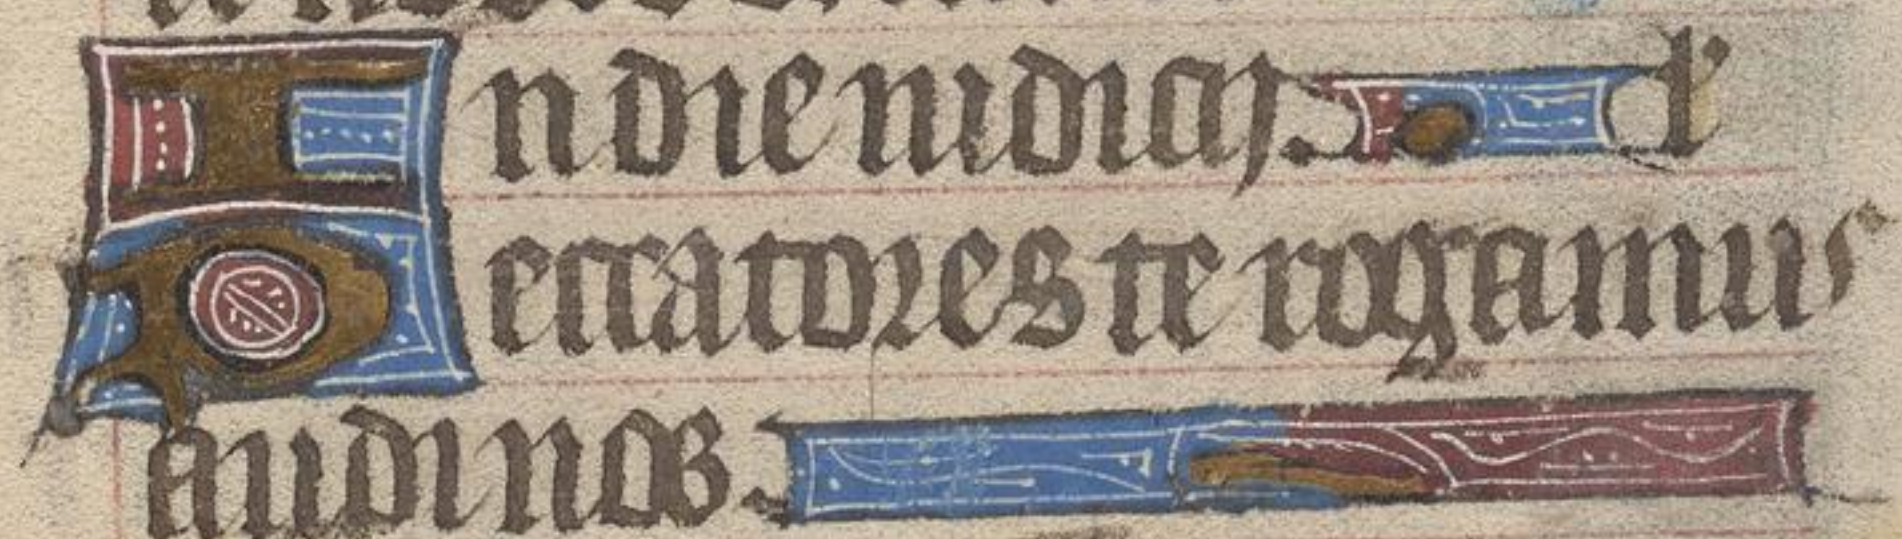 In die iudicij. l'
Peccatores te rogamus
audi nos.